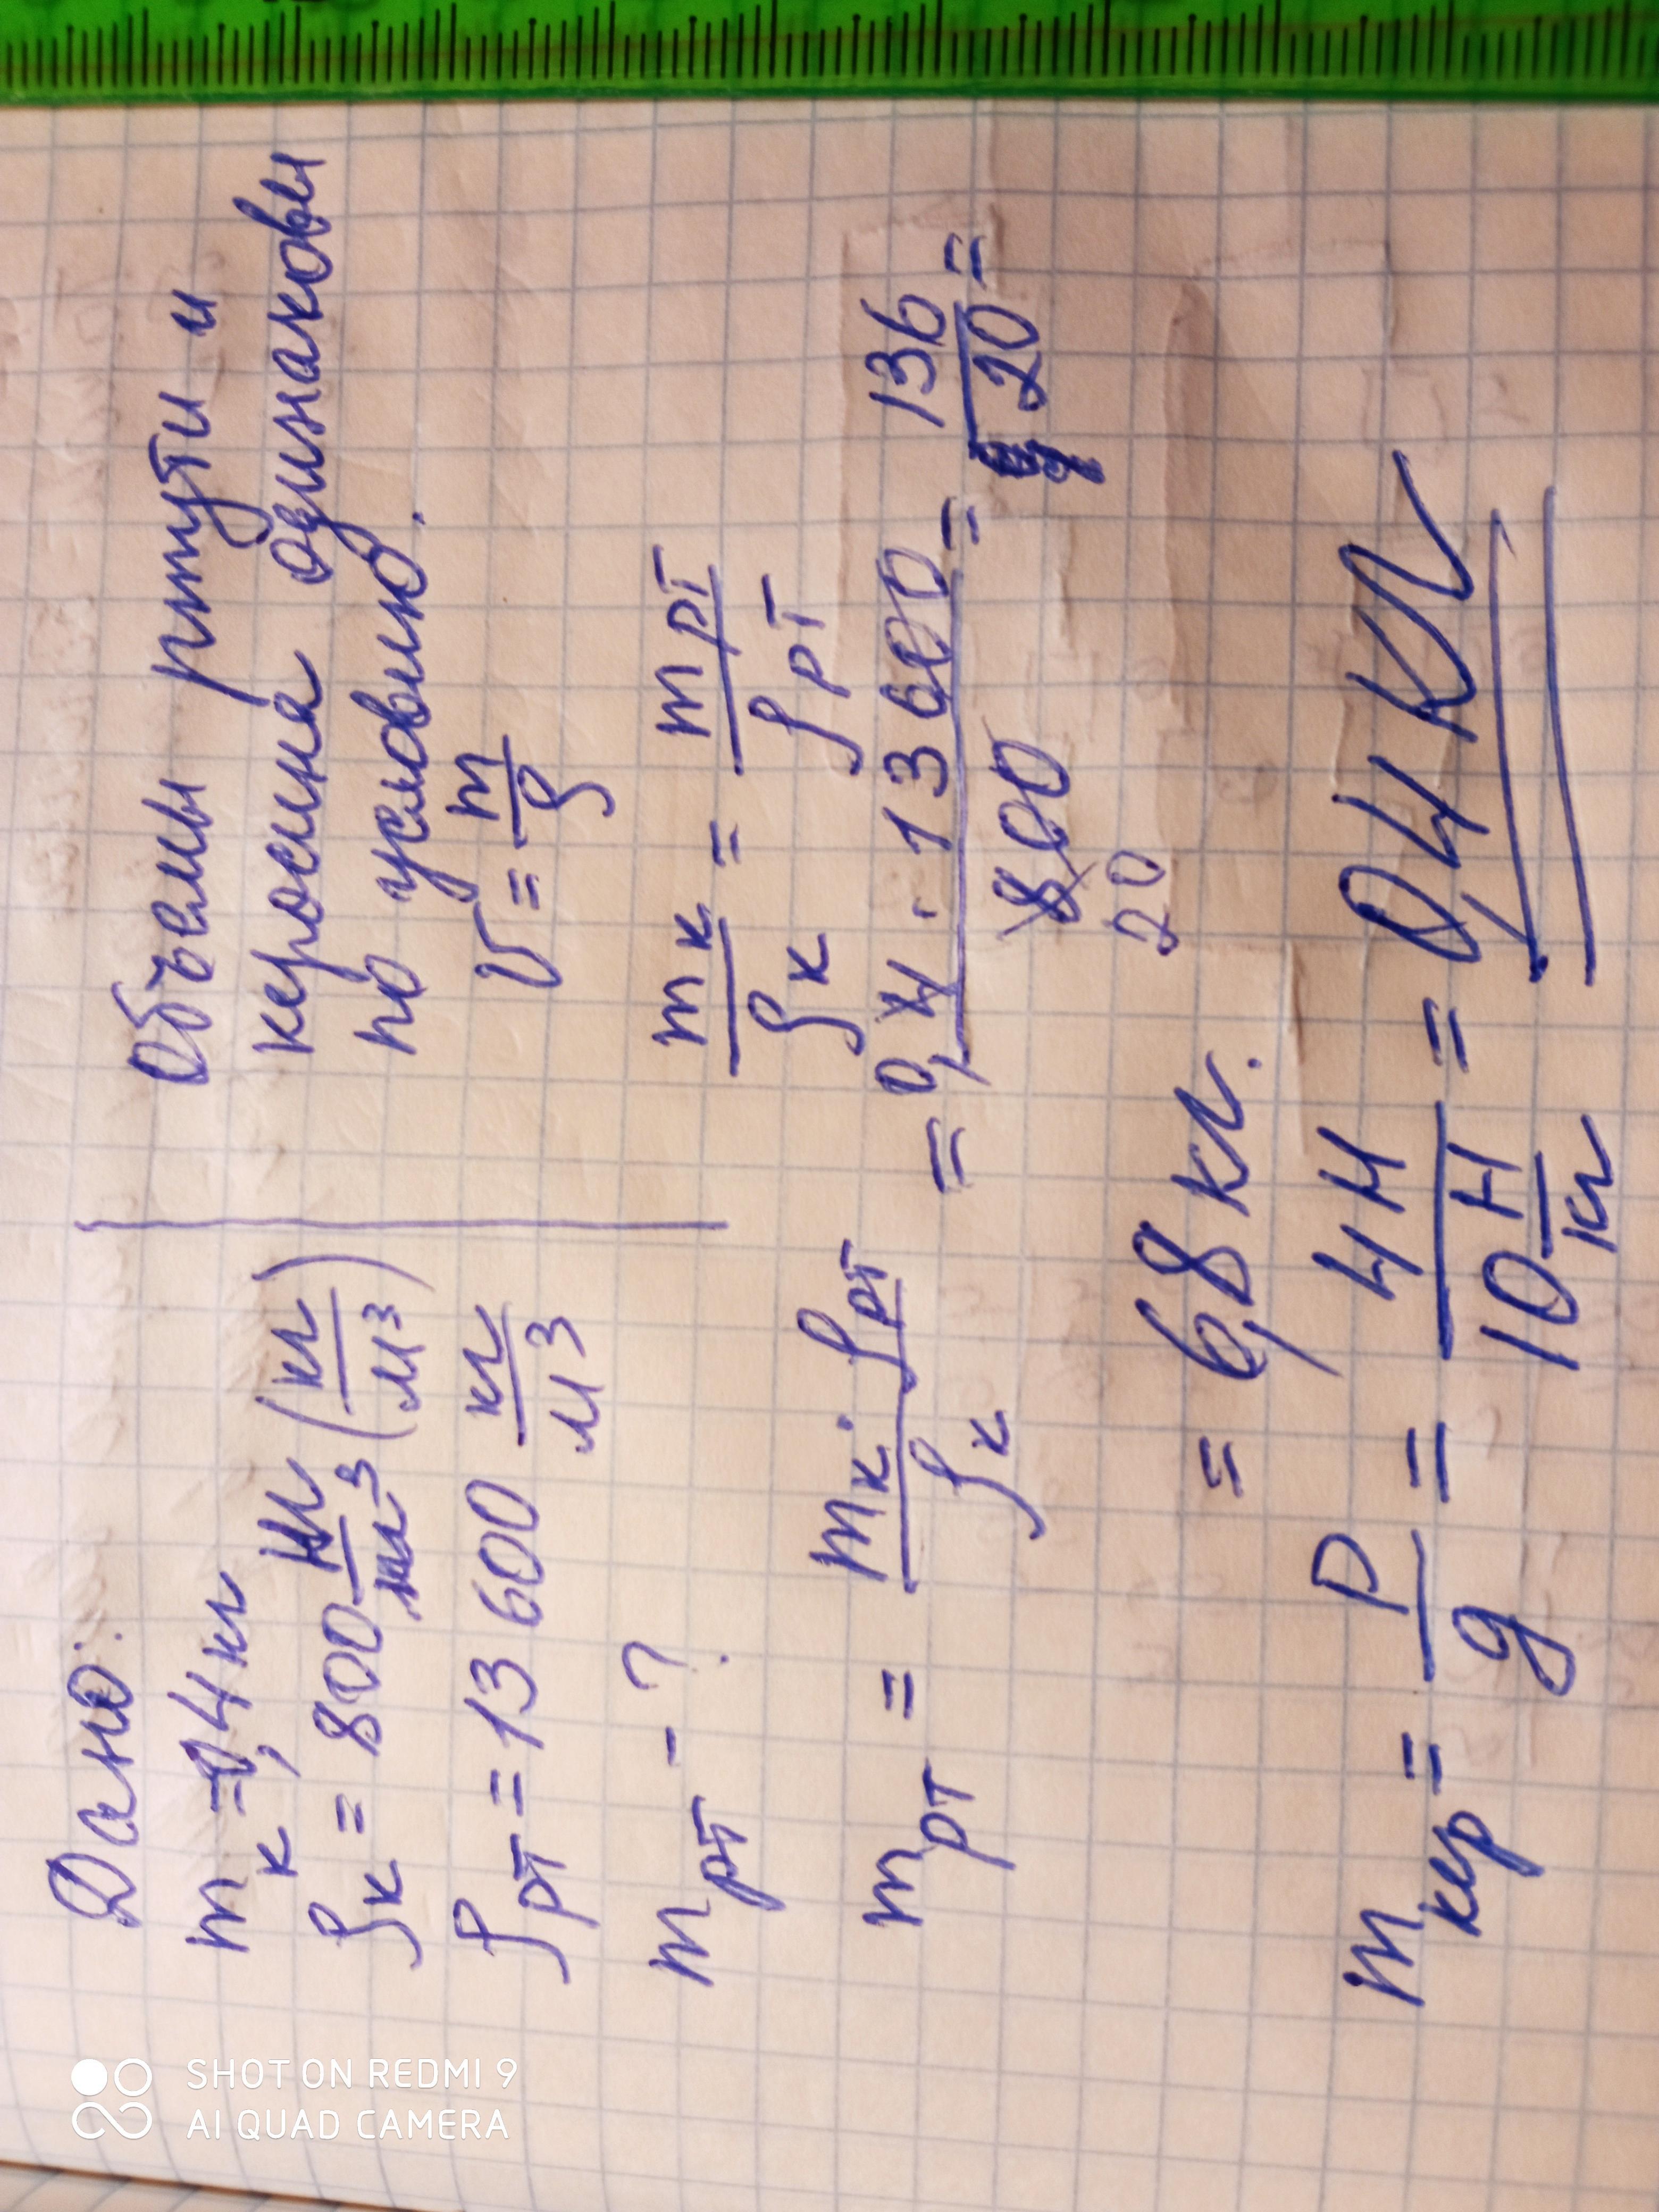 Дано:
m к = 0,4 кг
ρк = 800 кг/м³ (кг/м³)
ρрт = 13600 кг/м³
mрт - ?
Объемы ртути и
керосина одинаковы
по условию.
V = m/ρ
mк/ρк = mрт/ρрт
mрт = mк · ρрт/ρк = 0,4 · 13600/800 = 136/20 =
20
= 6,8 кг.
mкер = P/g = 4Н/10 Н/кг = 0,4 кг
SHOT ON REDMI 9
AI QUAD CAMERA